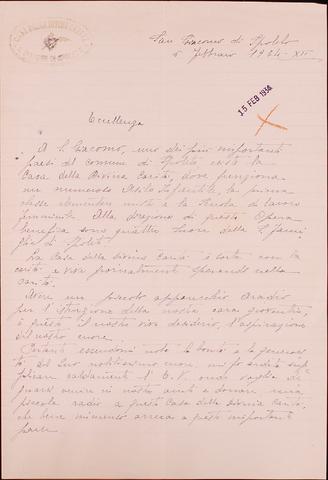 San Giacomo di Spoleto
5 Febbraio 1934-XII
15 FEB 1934
Eccellenza
A S. Giacomo, uno dei più importanti
paesi del comune di Spoleto esiste la
Casa della Divina Carità, dove funziona
un numeroso Asilo Infantile, la prima
classe elementare mista e la Scuola di lavoro
femminile. Alla direzione di questa Opera
benefica sono quattro Suore della S. Fami
glia di Spoleto.
La Casa della Divina Carità è sorta con la
carità e vive giornalmente sperando nella
carità.
Avere un piccolo apparecchio Aradio
per l'istruzione della nostra cara gioventù,
è questo il nostro vivo desiderio, l'aspirazione
del nostro cuore.
Pertanto essendomi nota la bontà e la generosità
del Suo nobilissimo cuore, mi fo ardita sup
plicare caldamente l'E. V. onde voglia de
gnarsi venire in nostro aiuto e donare una
piccola radio a questa Casa della Divina Carità,
che bene immenso arreca a questo importante
paese